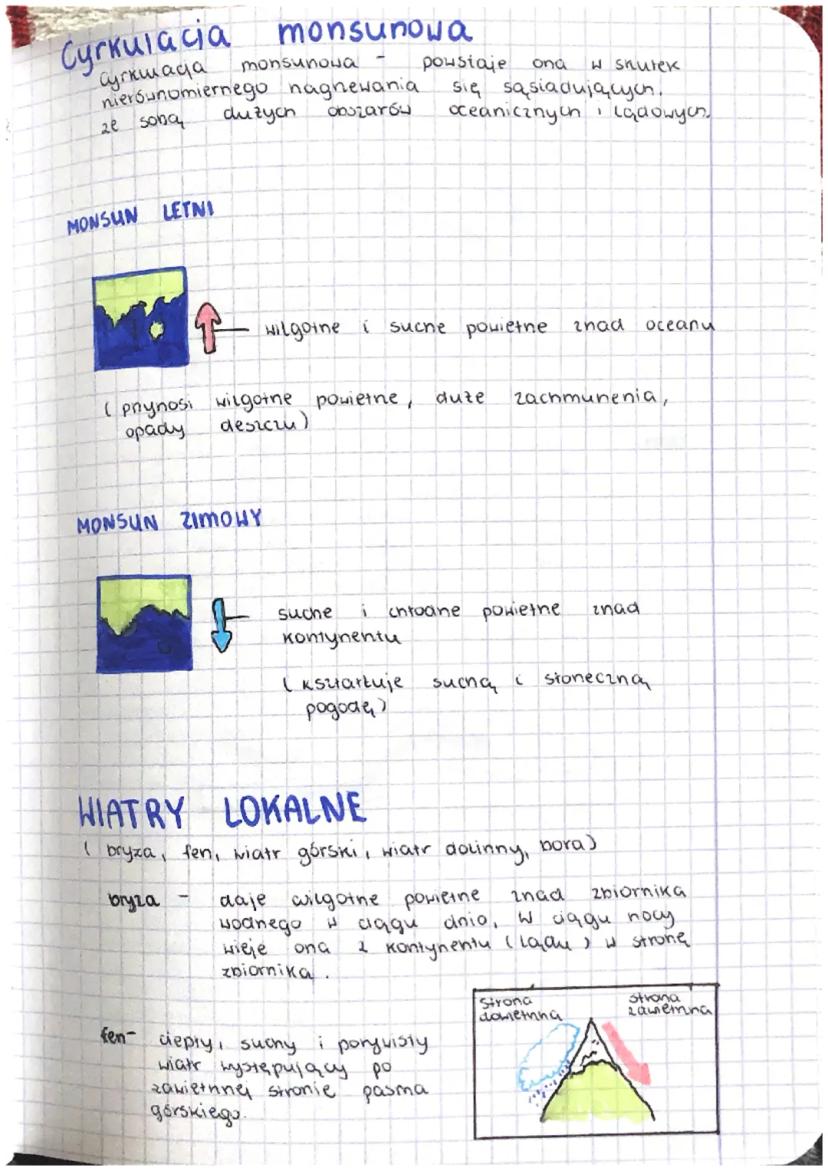 Cyrkulacja monsunowa
cyrkulacja monsunowa - powstaje ona w skutek
nierównomiernego nagrzewania się sąsiadujących,
ze sobą dużych obszarów oceanicznych i lądowych.
MONSUN LETNI
wilgotne i suche powietrze znad oceanu
( przynosi wilgotne powietrze, duże zachmurzenia,
opady deszczu)
MONSUN ZIMOWY
suche i chłodne powietrze znad
kontynentu
( kształtuje suchą i słoneczną
pogodę)
WIATRY LOKALNE
( bryza, fen, wiatr górski, wiatr dolinny, bora)
bryza - daje wilgotne powietrze znad zbiornika
wodnego w ciągu dnio, w ciągu nocy
wieje ona z kontynentu (lądu) w stronę
zbiornika.
strona
dowietrzna
strona
zawietrzna
fen- ciepły, suchy i porywisty
wiatr występujący po
zawietrznej stronie pasma
górskiego.